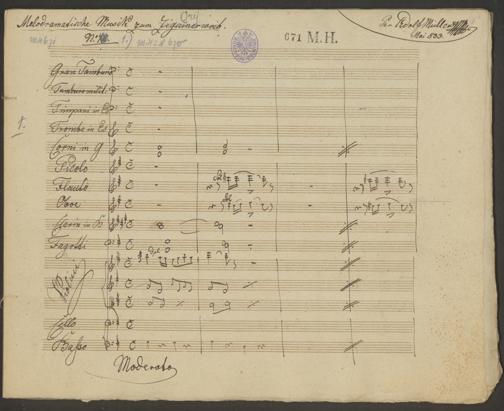 Melodramatische Musik zum Zigeunerweib.
Von Adolf Müller
Mai 833.
671 M.H.
Gran Tamburo
Timpani in Es
Trombe in Es
Corni in G
Picolo
Flauto
Oboe
Clarin in B
Fagotti
Violini
Cello
Basso
Moderato